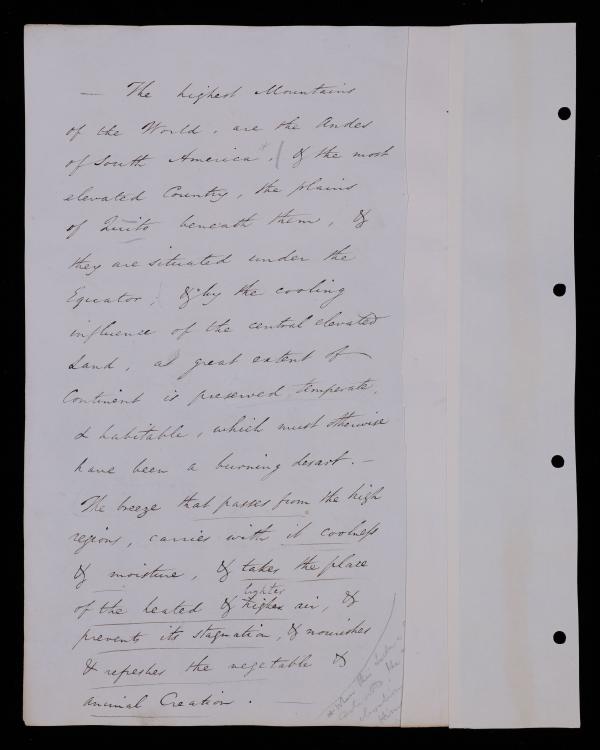 — The highest Mountains
of the World, are the Andes
of South America, & the most
elevated Country, the plains
of Quito beneath them, &
they are situated under the
Equator, & by the cooling
influence of the central elevated
Land, a great extent of
Continent is preserved temperate,
& habitable, which must otherwise
have been a burning desart. —
The breeze that passes from the high
regions, carries with it coolness
& moisture, & takes the place
lighter
of the heated & higher air, &
prevents its stagnation, & nourishes
& refreshes the vegetable &
animal Creation.